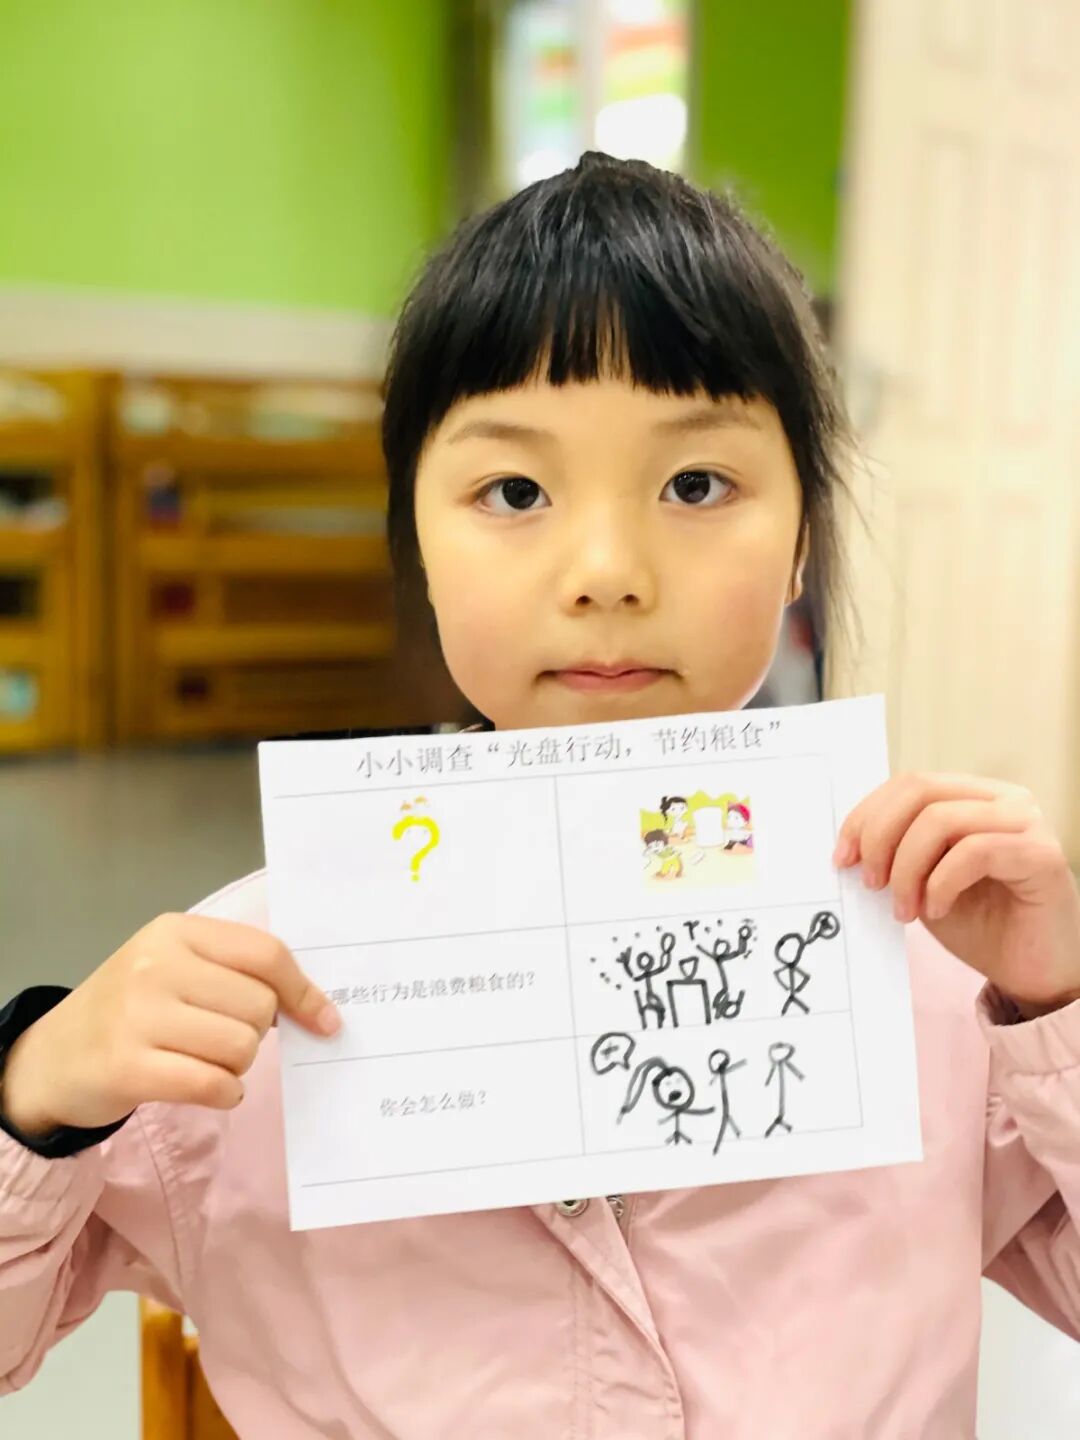 小小调查“光盘行动，节约粮食”
?
哪些行为是浪费粮食的？
你会怎么做？